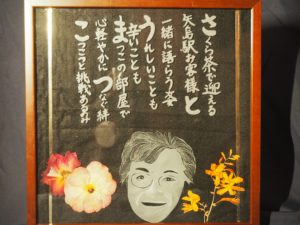 さくら茶で迎える
矢島駅お客様と
一緒に語らう姿
うれしいことも
辛いことも
まつこの部屋で
心軽やかにつなぐ絆
こつこつと挑戦あるのみ